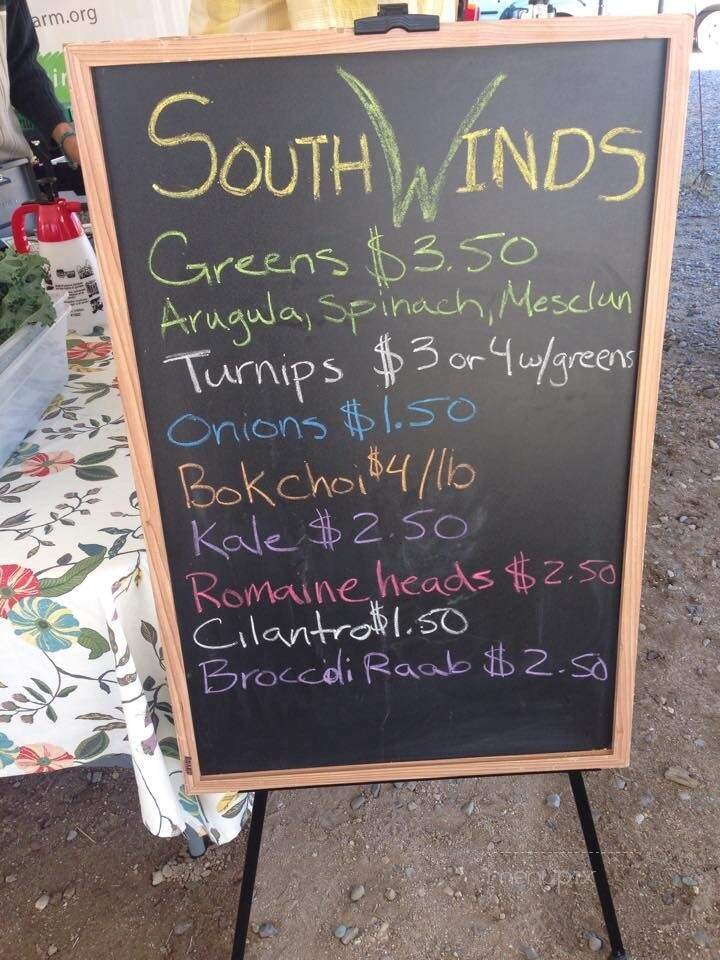 arm.org
SOUTH WINDS
Greens $3.50
Arugula, Spinach, Mesclun
Turnips $3 or 4 w/greens
Onions $1.50
Bok choi $4/lb
Kale $2.50
Romaine heads $2.50
Cilantro $1.50
Broccoli Raab $2.50
menupix